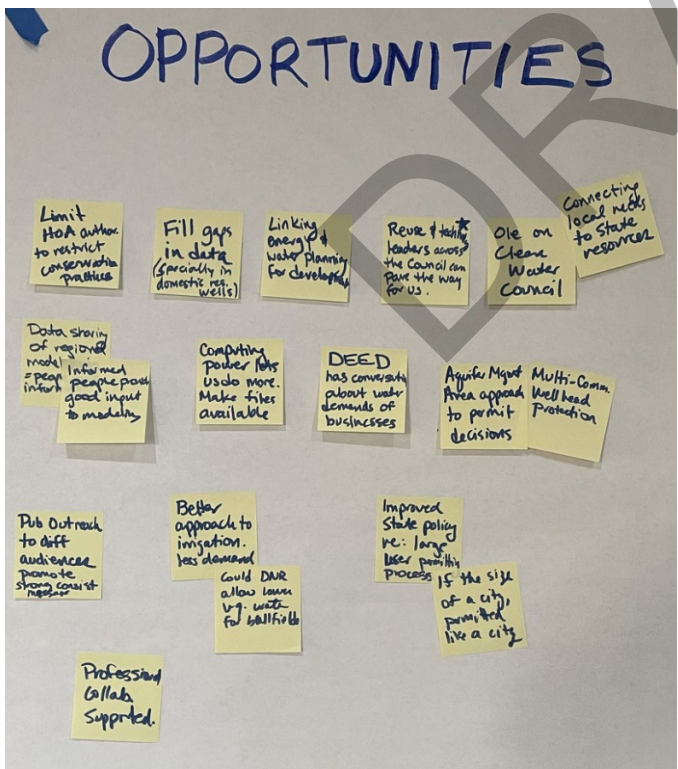 OPPORTUNITIES
Limit
HOA author.
to restrict
conservation
practices
Fill gaps
in data
(specially in
domestic res.
wells)
Linking
energy &
water planning
for develop
Reuse &
leaders across
the Council can
pave the way
for us.
Ole on
Clean
Water
Council
Connecting
local needs
to State
resources
Data sharing
of regional
model
=peop
inform
Informed
people pose
good input
to modeling
Computing
power lets
us do more.
Make files
available
DEED
has conversation
about water
demands of
businesses
Aquifer Mgmt
Area approach
to permit
decisions
Multi-Comm.
Wellhead
Protection
Pub Outreach
to diff
audiences
promote
strong consist
Better
approach to
irrigation.
less demand
Could DNR
allow lower
water
for ballfields
Improved
State policy
re: large
user permitting
process
If the size
of a city,
permitted
like a city
Professional
collab.
supported.
DRA